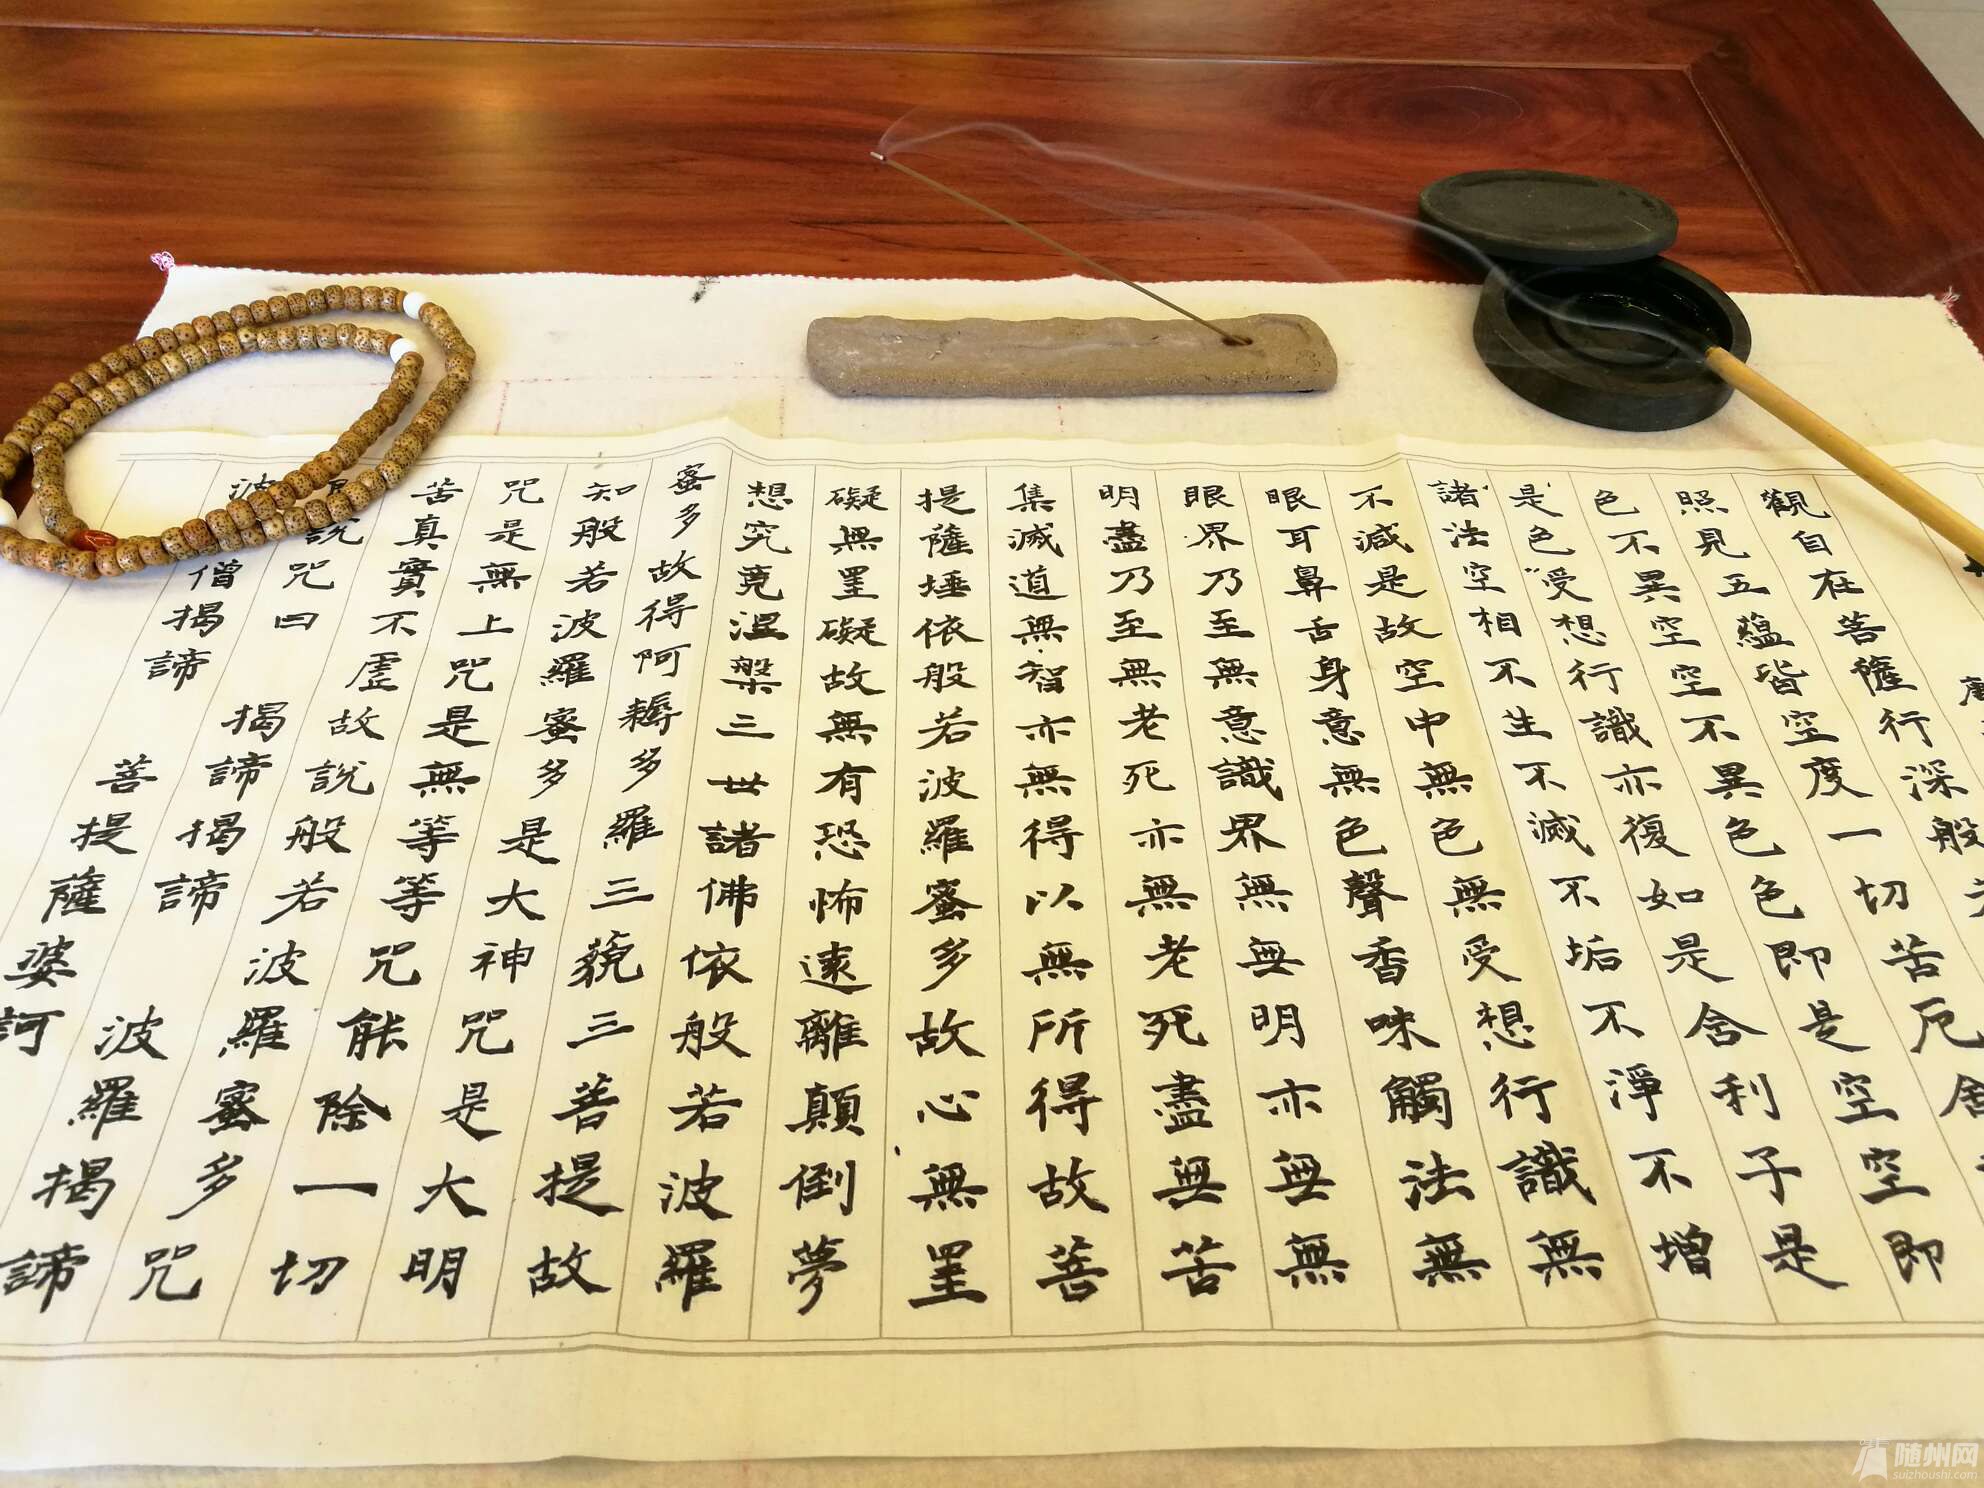 觀自在菩薩行深般
照見五蘊皆空度一切苦厄舍
色不異空空不異色色即是空空即
是色受想行識亦復如是舍利子是
諸法空相不生不滅不垢不淨不增
不減是故空中無色無受想行識無
眼耳鼻舌身意無色聲香味觸法無
眼界乃至無意識界無無明亦無無
明盡乃至無老死亦無老死盡無苦
集滅道無智亦無得以無所得故菩
提薩埵依般若波羅蜜多故心無罣
礙無罣礙故無有恐怖遠離顛倒夢
想究竟涅槃三世諸佛依般若波羅
蜜多故得阿耨多羅三藐三菩提故
知般若波羅蜜多是大神咒是大明
咒是無上咒是無等等咒能除一切
苦真實不虛故說般若波羅蜜多咒
說咒曰 揭諦揭諦 波羅揭諦
波 僧揭諦 菩提薩婆訶
随州网
suizhoushi.com